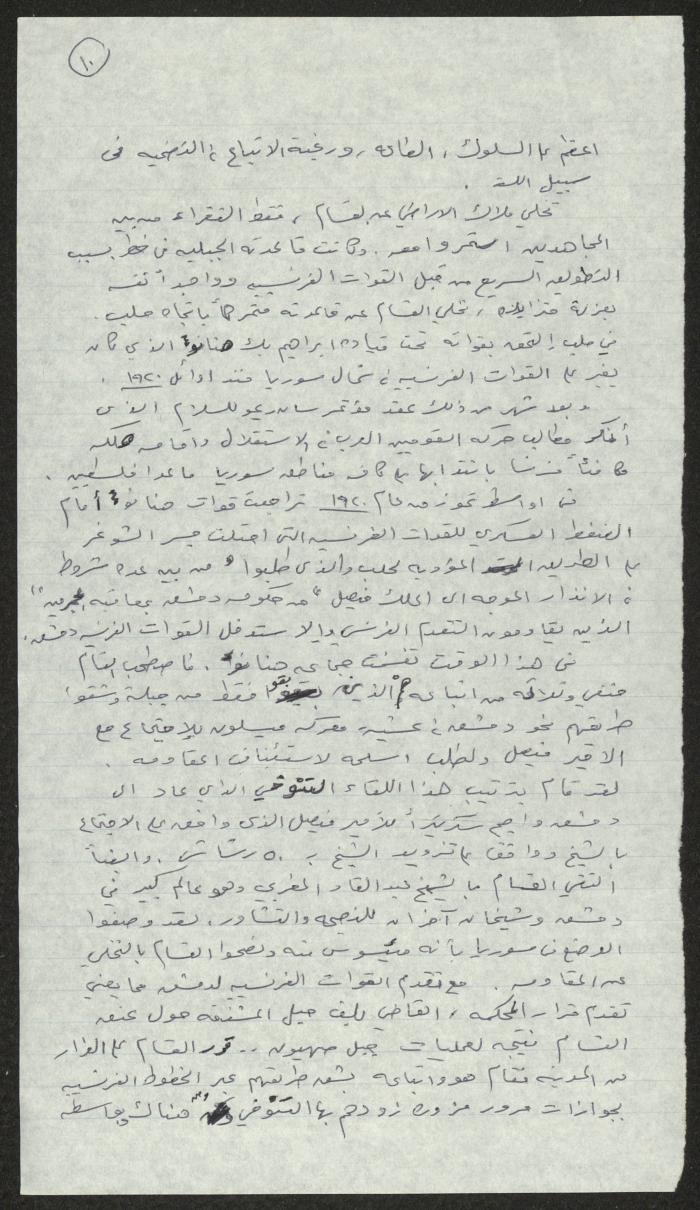 ١٠
اعظم على السلوك ، الطاعه ، ورغبة الاتباع في التضحيه فى
سبيل الله .
تخلي ملاك الاراضي عن القسام ، فقط الفقراء من بين
المجاهدين استمروا معه . وكانت قاعدته الجبليه فى خطر بسبب
التطويق السريع من قبل القوات الفرنسيه وواجداً نفسه
بعزلة متزايده ، تخلي القسام عن قاعدته متحركاً باتجاه حلب .
في حلب إلتحق بقواته تحت قيادة ابراهيم بك هنانو الذي كان
يغير على القوات الفرنسيه في شمال سوريا منذ اوائل ١٩٢٠ .
وبعد شهر من ذلك عقد مؤتمر سان ريمو للسلام الذى
أنكر مطالب حركه القوميين العرب في الاستقلال واقامه مملكه
مكافئاً فرنسا بانتدابها على كافه مناطق سوريا ما عدا فلسطين .
فى اواسط تموز من عام ١٩٢٠ تراجعت قوات هنانو أمام
الضغط العسكري للقوات الفرنسيه التى احتلت جسر الشوغر
على الطريق المؤديه لحلب والذى طلبوا من بين عده شروط
في الانذار الموجه الى الملك فيصل "من حكومه دمشق بمعاقبه المجرمين"
الذين يقاومون التقدم الفرنسي وإلا ستدخل القوات الفرنسيه دمشق .
فى هذا الوقت تفتت جماعه هنانو . فاصطحب القسام
حنفي وثلاثه من اتباعه هم الذين بقوا فقط من جبلة وشقوا
طريقهم نحو دمشق في عشيه معركه ميسلون للاجتماع مع
الامير فيصل ولطلب اسلحه لاستئناف المقاومه .
لقد قام بترتيب هذا اللقاء التنوخي الذي عاد الى
دمشق واصبح سكرتيراً للامير فيصل الذى وافق على الاجتماع
بالشيخ ووافق على تزويد الشيخ بـ ٥٠ رشاش . وايضاً
التقي القسام بالشيخ عبد القادر المغربي وهو عالم كبير في
دمشق وشيخان آخران للنصيحه والتشاور . لقد وصفوا
الوضع فى سوريا بأنه ميئوس منه ونصحوا القسام بالتخلي
عن المقاومه . مع تقدم القوات الفرنسيه لدمشق مما يعني
تقدم قرار المحكمه ، القاضي بلف حبل المشنقه حول عنق
القسام نتيجه لعمليات جبل صهيون .. قرر القسام على الفرار
من المدينه فقام هو واتباعه بشق طريقهم عبر الخطوط الفرنسيه
بجوازات مرور مزوره زودهم بها التنوخي هناك بواسطه